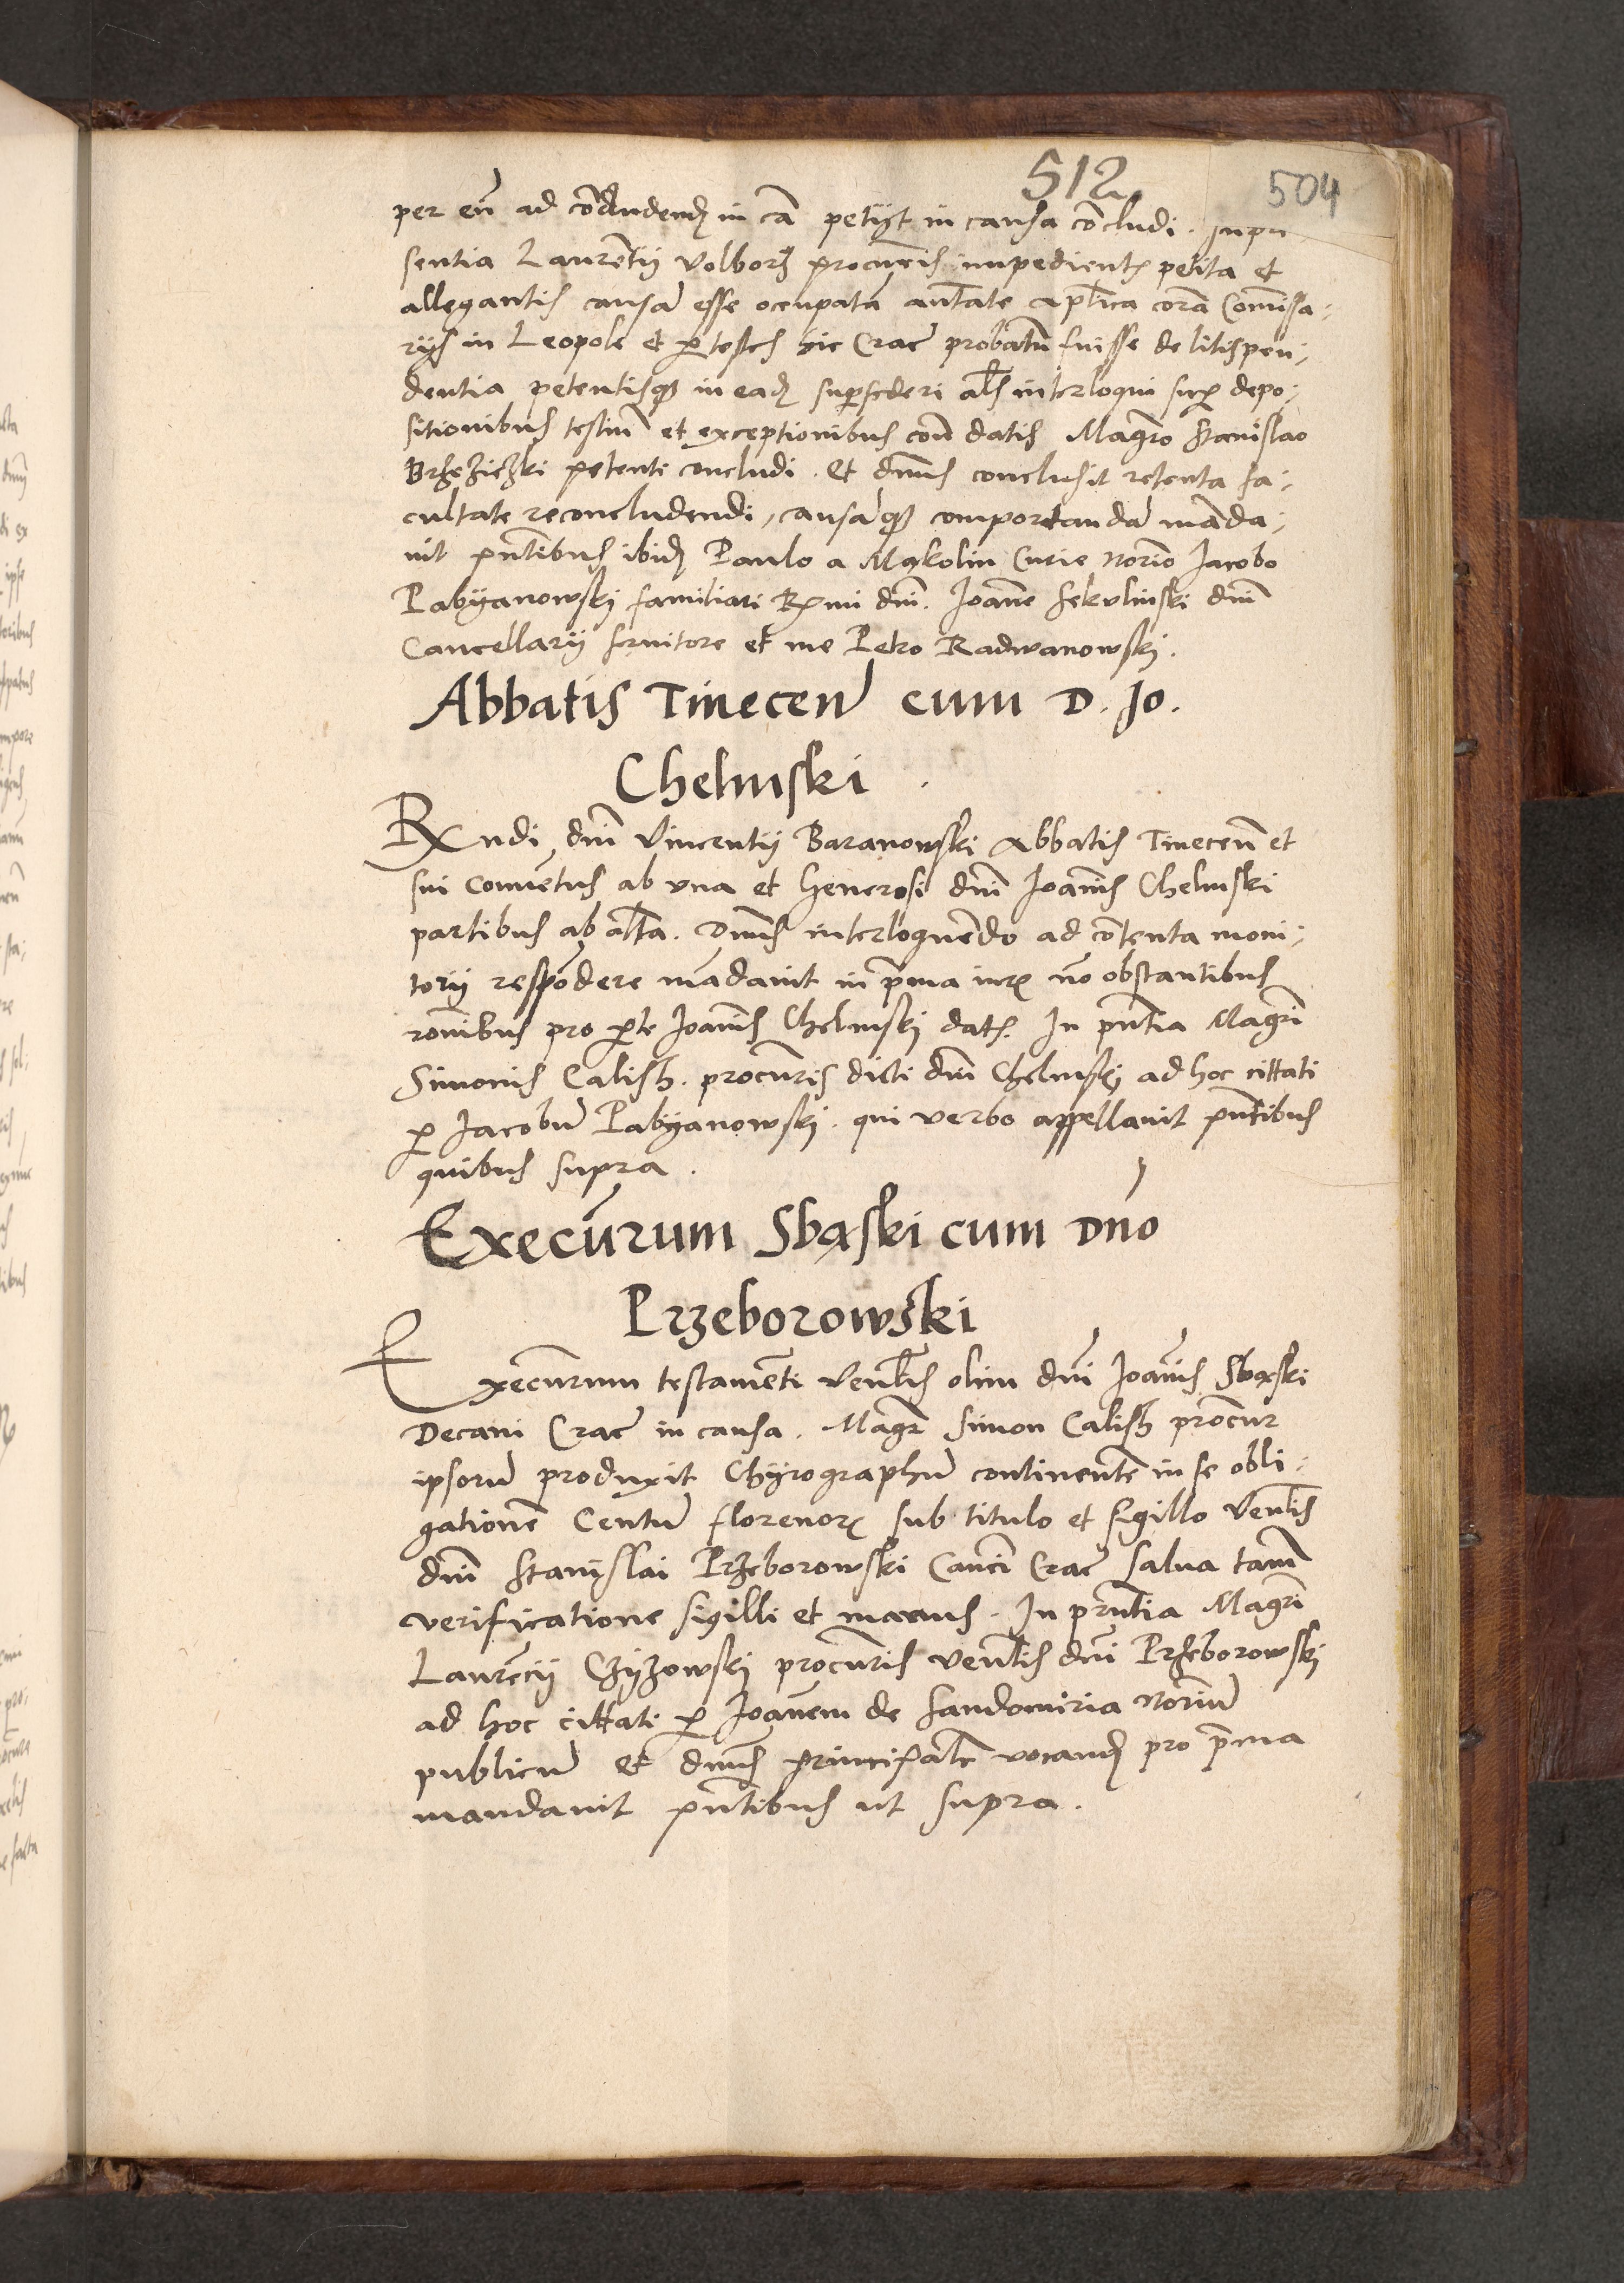 512
504
per eū ad cōcludend in cā petijt in causa cōcludi. In pn
sentia Laurētij Volborz procūris impedientꝭ petita et
allegantis causā esse ocupatā autate aplica corā Comissa-
rijs in Leopole et ꝑ testes hic Crac probatū fuisse de litispen-
dentia petentisqꝫ in ead supersederi als interloqui sup depo-
sitionibus testiū et exceptionibus con datis Magro Stanislao
Brzeziczki petenti concludi. Et dnus conclusit retenta fa-
cultate reconcludendi, causāqꝫ comportandā māda-
uit pntibus ibid Paulo a Mąkolin Curie norio Jacobo
Pabyanowskj familiari Rmi dni. Joane Sekvlinski dni
Cancellarij seruitore et me Petro Radwanowskj.
Abbatis Tinecen cum D. Jo.
Chelmski
Rndi dni Vincentij Baranowski Abbatis Tinecen et
sui Conuētus ab vna et Generosi dni Joanis Chelmski
partibus ab alta. Dnus interloquēdo ad cōtenta moni-
torij respōdere mādauit in pma iurꝭ nō obstantibus
ronibus pro pte Joanis Chelmskj datꝭ. In pntia Magri
Simonis Calish. procūris dicti dni Chelmskj ad hoc cittati
ꝑ Jacobū Pabyanowskj. qui verbo appellauit pntibus
quibus supra.
Execūrum Sbąski cum Dno
Przeborowski
Execūrum testamēti Venlis olim dni Joanis Sbąski
Decani Crac in causa. Magr Simon Calish procur
ipsorū produxit Chyrographū continentē in se obli-
gationē Centū florenorꝭ sub titulo et sigillo Venlis
dni Stanislai Przeborowski Canci Crac salua tam
verificatione sigilli et manus. In pntia Magri
Laurēcij Czyzowskj procūris venlis dni Przeborowskj
ad hoc cittati ꝑ Joanem de Sandomiria norium
publicū et dnus principale vocand pro pma
mandauit pntibus ut supra.